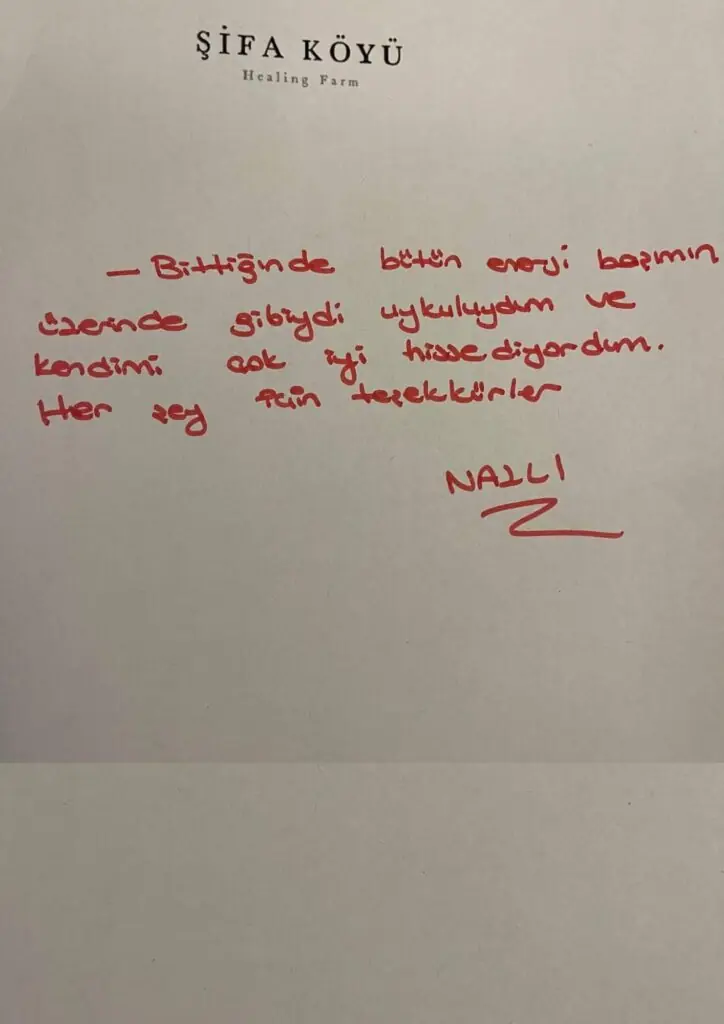 ŞİFA KÖYÜ
Healing Farm
— Bittiğinde bütün enerji başımın
üzerinde gibiydi uykuluydum ve
kendimi çok iyi hissediyordum.
Her şey için teşekkürler
NAILI